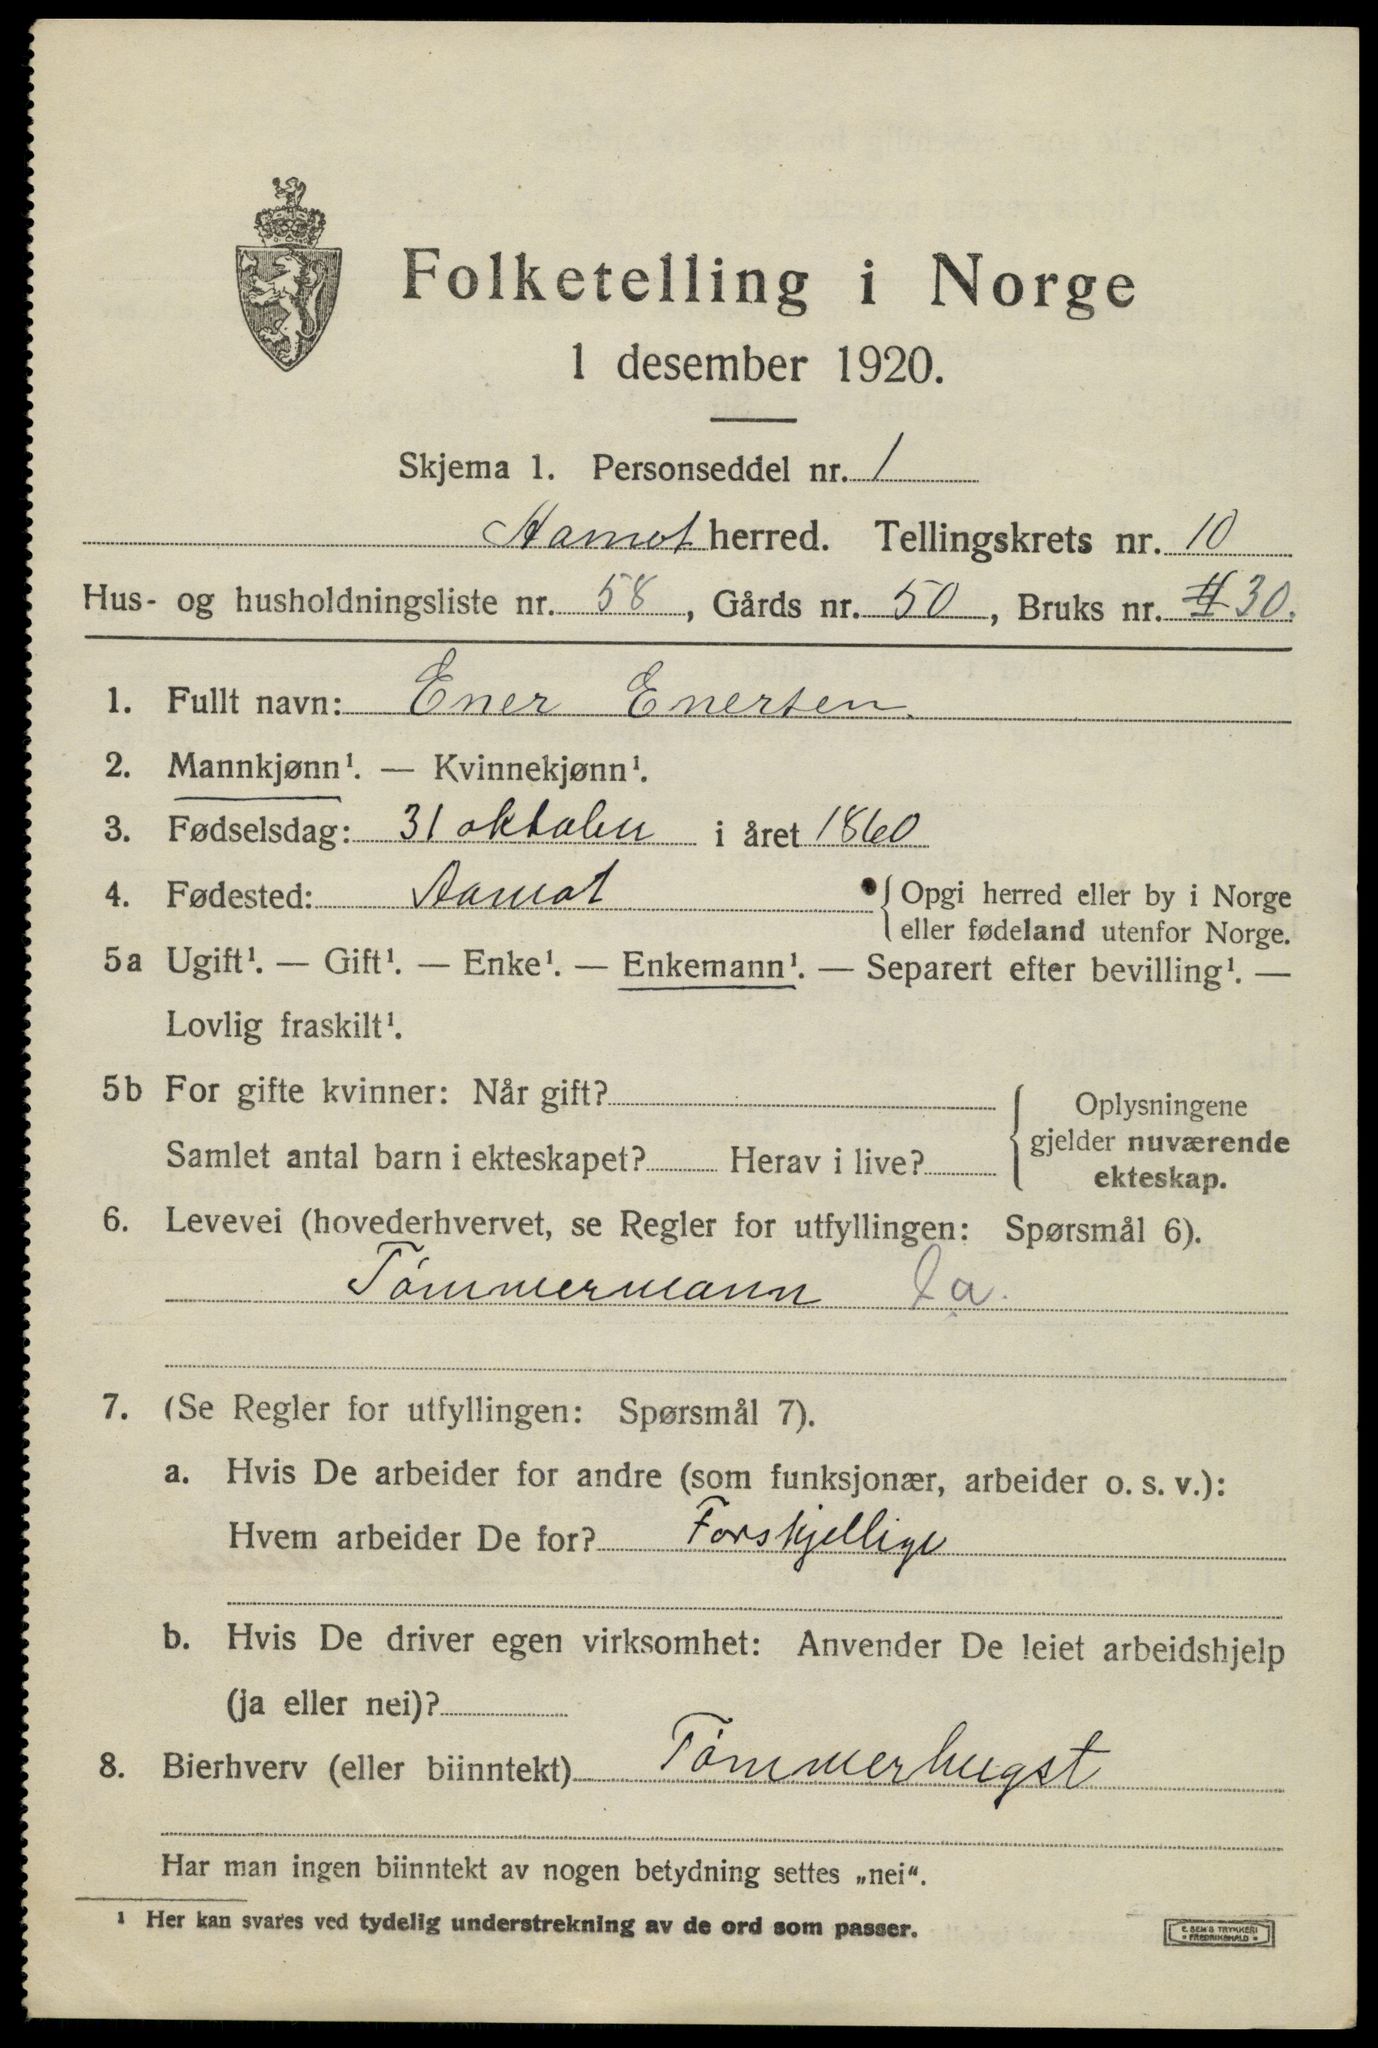 Folketelling i Norge
1 desember 1920.
Skjema 1. Personseddel nr. 1
Aamot herred. Tellingskrets nr. 10
Hus- og husholdningsliste nr. 58, Gårds nr. 50, Bruks nr. 30.
1. Fullt navn: Ener Enersen.
2. Mannkjønn¹. — Kvinnekjønn¹.
3. Fødselsdag: 31 oktober i året 1860
4. Fødested: Aamot { Opgi herred eller by i Norge
eller fødeland utenfor Norge.
5a Ugift¹. — Gift¹. — Enke¹. — Enkemann¹. — Separert efter bevilling¹. —
Lovlig fraskilt¹.
5b For gifte kvinner: Når gift? { Oplysningene
gjelder nuværende
Samlet antal barn i ekteskapet? Herav i live?
ekteskap.
6. Levevei (hovederhvervet, se Regler for utfyllingen: Spørsmål 6).
Tømmermann
7. (Se Regler for utfyllingen: Spørsmål 7).
a. Hvis De arbeider for andre (som funksjonær, arbeider o. s. v.):
Hvem arbeider De for? Forskjellige
b. Hvis De driver egen virksomhet: Anvender De leiet arbeidshjelp
(ja eller nei)?
8. Bierhverv (eller biinntekt) Tømmerhugst
Har man ingen biinntekt av nogen betydning settes „nei“.
¹ Her kan svares ved tydelig understrekning av de ord som passer.
E. SEM'S TRYKKERI
• FREDRIKSHALD •